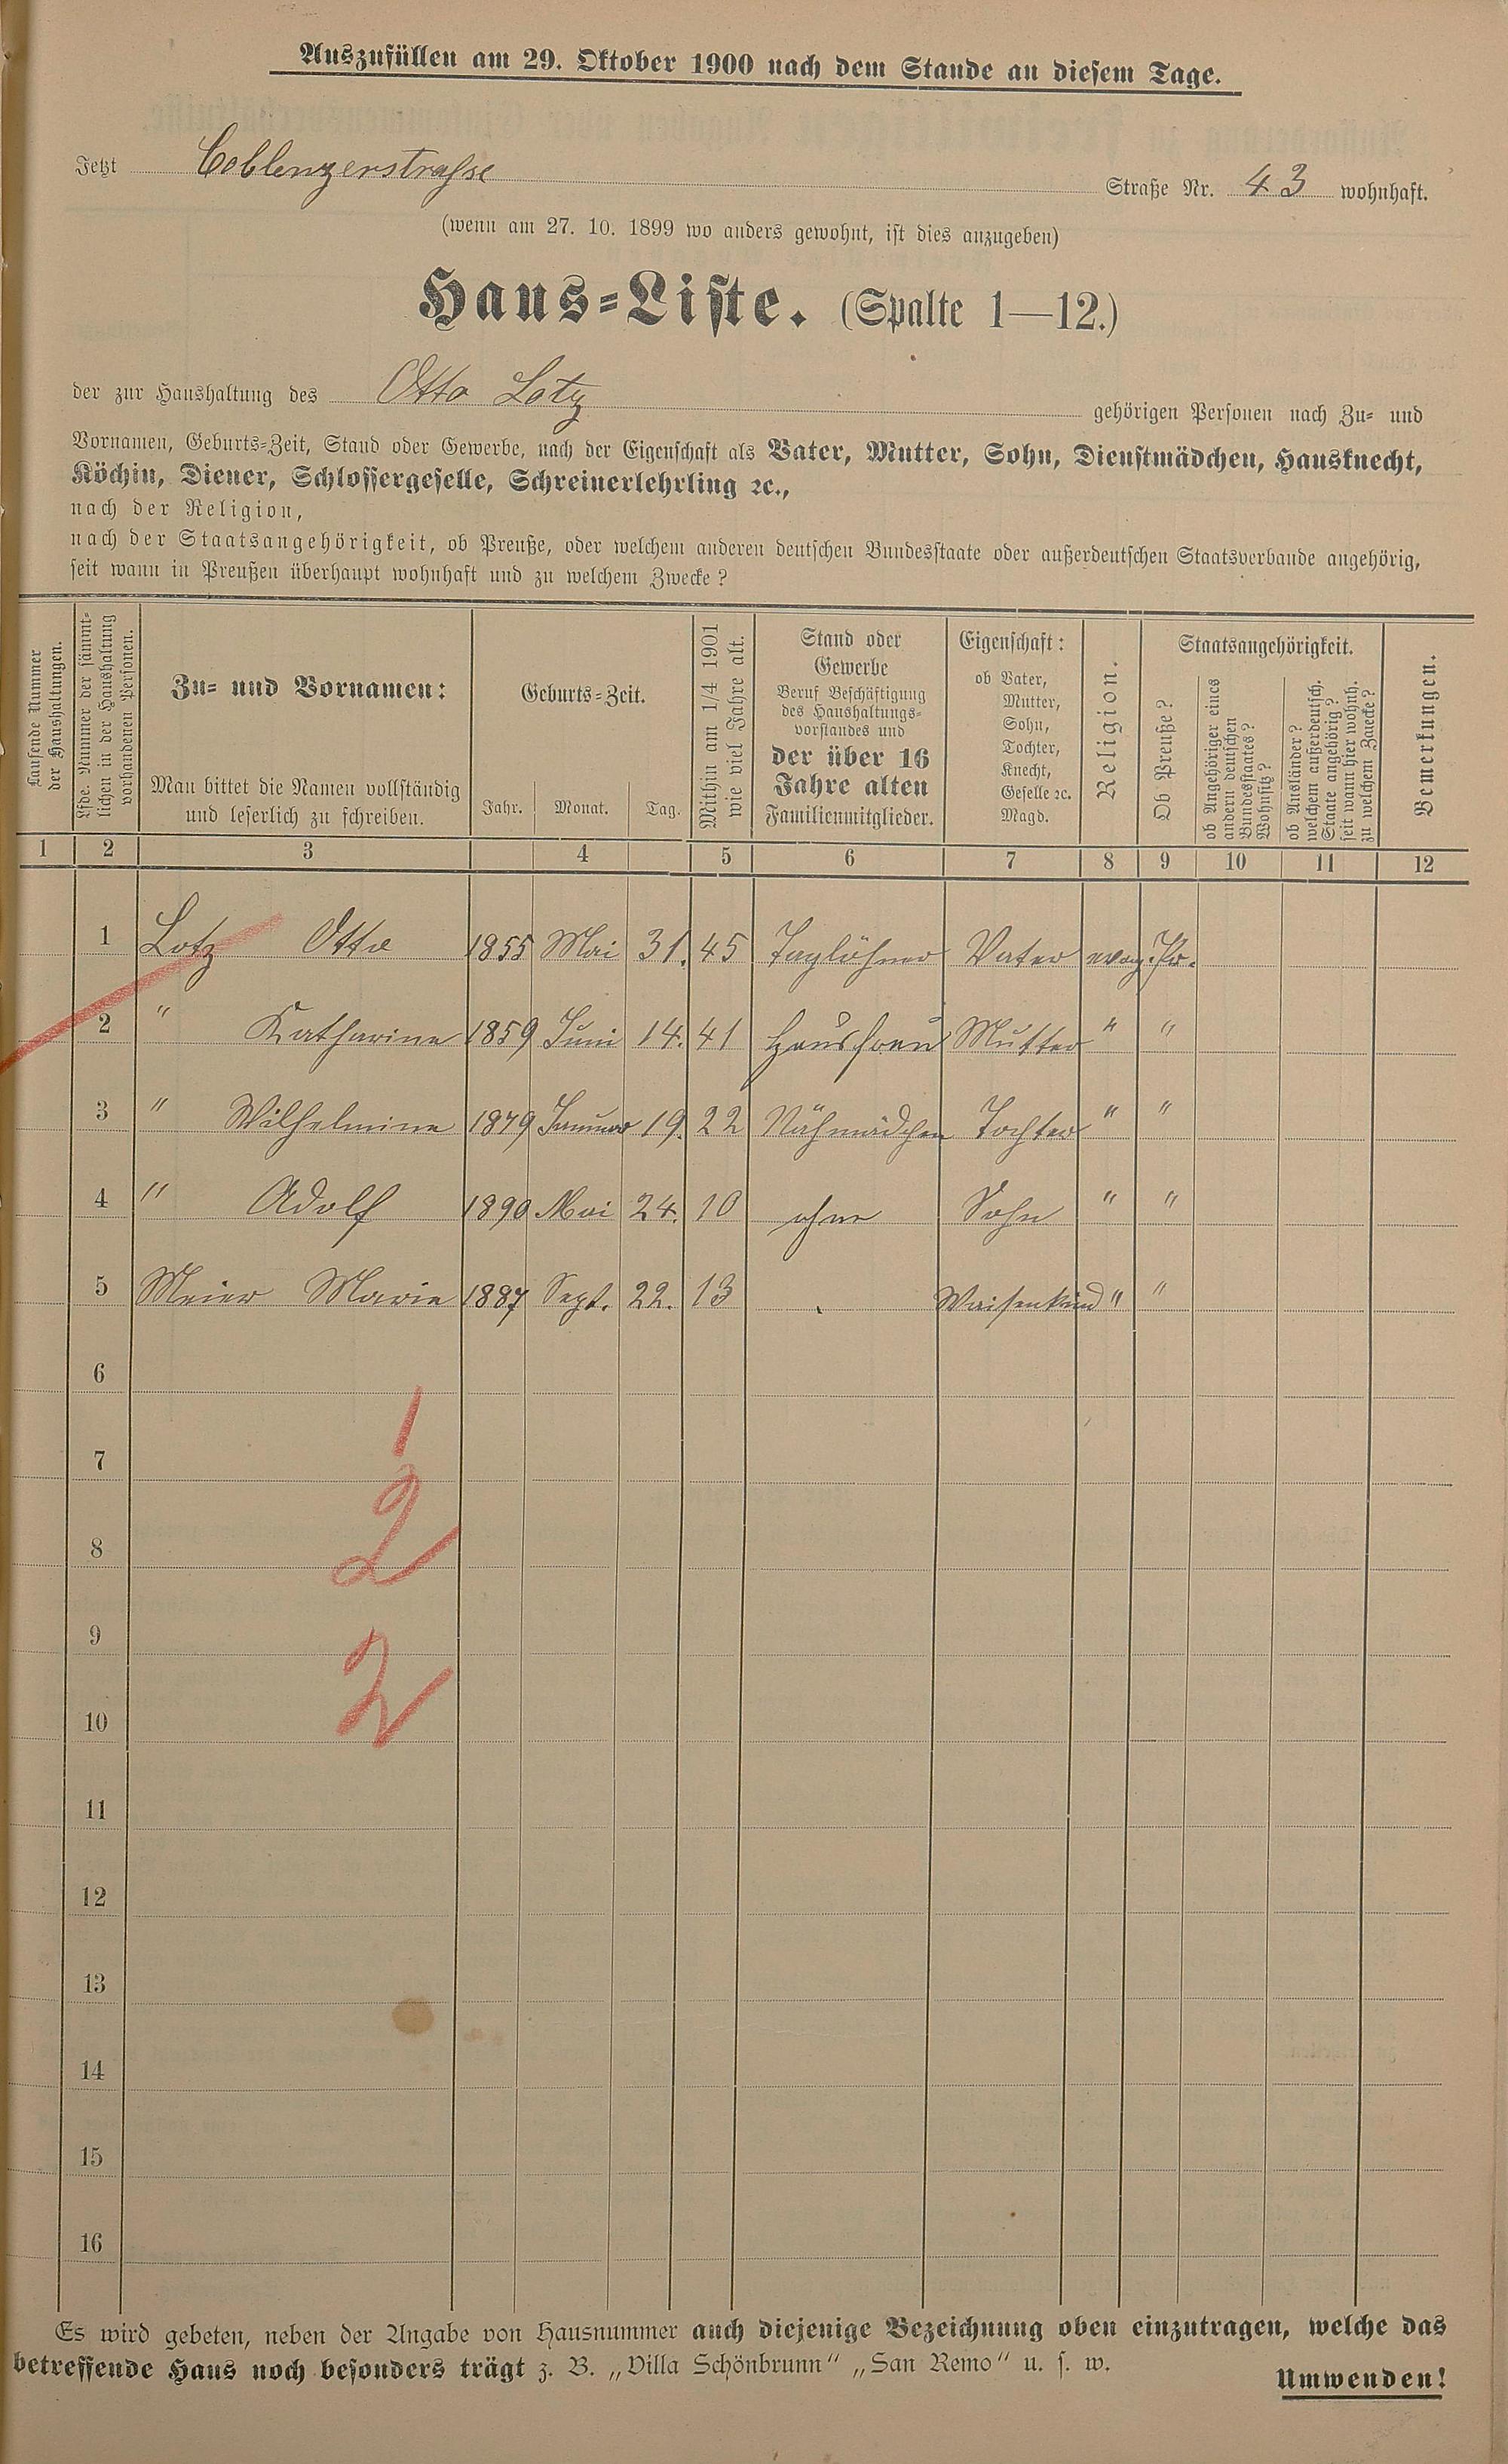 Auszufüllen am 29. Oktober 1900 nach dem Stande an diesem Tage.
Jetzt Coblenzerstrasse Straße Nr. 43 wohnhaft.
(wenn am 27. 10. 1899 wo anders gewohnt, ist dies anzugeben)
Haus-Liste. (Spalte 1—12.)
der zur Haushaltung des Otto Lotz gehörigen Personen nach Zu- und
Vornamen, Geburts-Zeit, Stand oder Gewerbe, nach der Eigenschaft als Vater, Mutter, Sohn, Dienstmädchen, Hausknecht,
Köchin, Diener, Schlossergeselle, Schreinerlehrling ꝛc.,
nach der Religion,
nach der Staatsangehörigkeit, ob Preuße, oder welchem anderen deutschen Bundesstaate oder außerdeutschen Staatsverbande angehörig,
seit wann in Preußen überhaupt wohnhaft und zu welchem Zwecke?
Laufende Nummer
der Haushaltungen.
Lfde. Nummer der sämmt-
lichen in der Haushaltung
vorhandenen Personen.
Zu- und Vornamen:
Man bittet die Namen vollständig
und leserlich zu schreiben.
Geburts-Zeit.
Jahr. Monat. Tag.
Mithin am 1/4 1901
wie viel Jahre alt.
Stand oder
Gewerbe
Beruf Beschäftigung
des Haushaltungs-
vorstandes und
der über 16
Jahre alten
Familienmitglieder.
Eigenschaft:
ob Vater,
Mutter,
Sohn,
Tochter,
Knecht,
Geselle ꝛc.
Magd.
Religion.
Staatsangehörigkeit.
Ob Preuße?
ob Angehöriger eines
andern deutschen
Bundesstaates?
Wohnsitz?
ob Ausländer?
welchem außerdeutsch.
Staate angehörig?
seit wann hier wohnh.
zu welchem Zwecke?
Bemerkungen.
1 2 3 4 5 6 7 8 9 10 11 12
1 Lotz Otto 1855 Mai 31. 45 Taglöhner Vater evag. Pr.
2 " Katharina 1859 Juni 14. 41 Hausfrau Mutter " "
3 " Wilhelmine 1879 Januar 19. 22 Nähmädchen Tochter " "
4 " Adolf 1890 Mai 24. 10 ohne Sohn " "
5 Meier Marie 1887 Sept. 22. 13 Waisenkind " "
6
7
8
9
10
11
12
13
14
15
16
1
2
2
Es wird gebeten, neben der Angabe von Hausnummer auch diejenige Bezeichnung oben einzutragen, welche das
betreffende Haus noch besonders trägt z. B. „Villa Schönbrunn“ „San Remo“ u. s. w.
Umwenden!